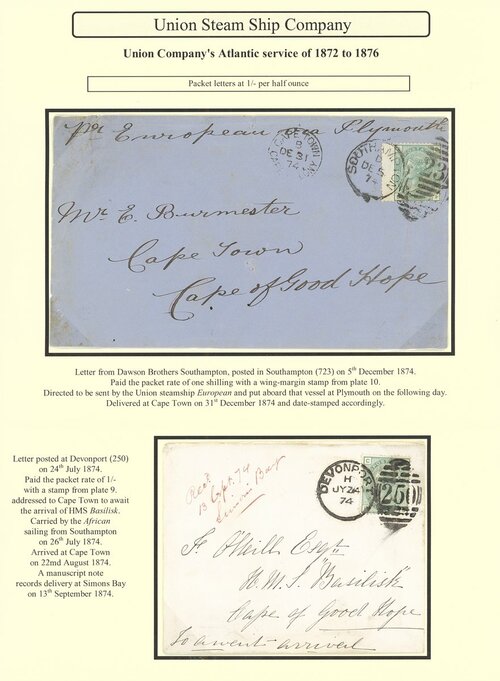 Union Steam Ship Company
Union Company's Atlantic service of 1872 to 1876
Packet letters at 1/- per half ounce
per European via Plymouth
CAPE TOWN
DE 31
74
SOUTHAMPTON
DE 5
74
723
Mr E. Burmester
Cape Town
Cape of Good Hope
Letter from Dawson Brothers Southampton, posted in Southampton (723) on 5th December 1874.
Paid the packet rate of one shilling with a wing-margin stamp from plate 10.
Directed to be sent by the Union steamship European and put aboard that vessel at Plymouth on the following day.
Delivered at Cape Town on 31st December 1874 and date-stamped accordingly.
Letter posted at Devonport (250)
on 24th July 1874.
Paid the packet rate of 1/-
with a stamp from plate 9.
addressed to Cape Town to await
the arrival of HMS Basilisk.
Carried by the African
sailing from Southampton
on 26th July 1874.
Arrived at Cape Town
on 22md August 1874.
A manuscript note
records delivery at Simons Bay
on 13th September 1874.
Recd
13 Sept. 74
Simons Bay
DEVONPORT
H
JY 24
74
250
F. O'Neill Esqre
H.M.S. "Basilisk"
Cape of Good Hope
To await arrival